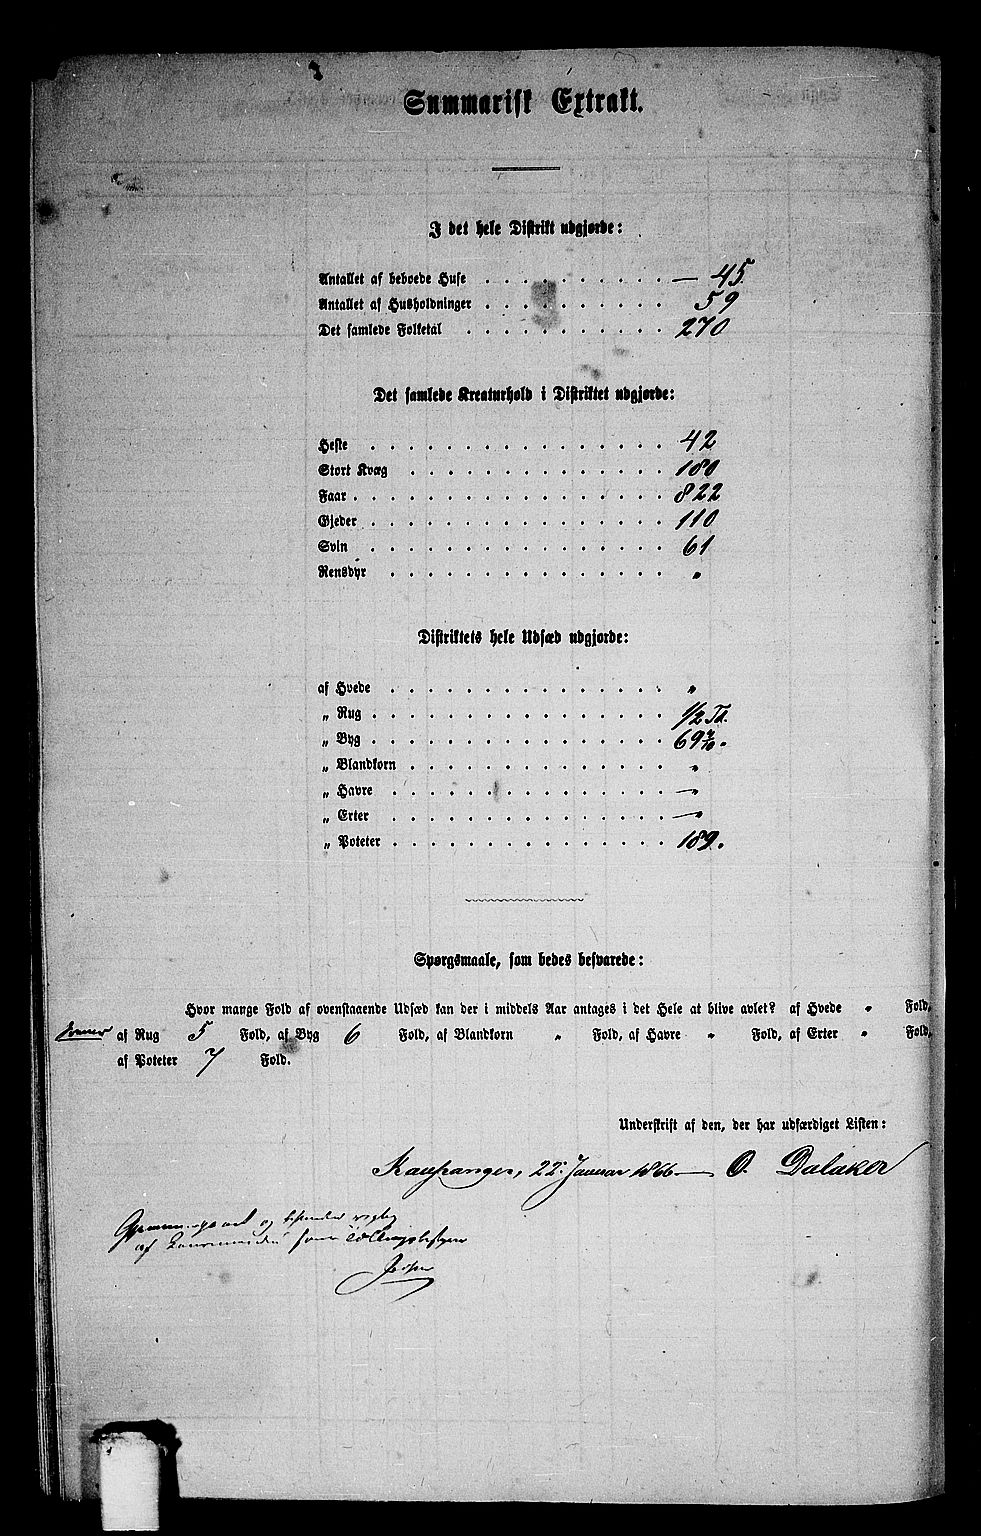 Summarisk Extrakt.
I det hele Distrikt udgjorde:
Antallet af beboede Huse . . . . . . . . . . — 45.
Antallet af Husholdninger . . . . . . . . . . 59
Det samlede Folketal . . . . . . . . . . . 270
Det samlede Kreaturhold i Distriktet udgjorde:
Heste . . . . . . . . . . . . . . . . 42
Stort Kvæg . . . . . . . . . . . . . . 180
Faar . . . . . . . . . . . . . . . . . 822
Gjeder . . . . . . . . . . . . . . . . 110
Svin . . . . . . . . . . . . . . . . 61
Rensdyr . . . . . . . . . . . . . . . "
Distriktets hele Udsæd udgjorde:
af Hvede . . . . . . . . . . . . . . . "
„ Rug . . . . . . . . . . . . . . . . 1/2 Td.
„ Byg . . . . . . . . . . . . . . . . 69 4/10 "
„ Blandkorn . . . . . . . . . . . . . . "
„ Havre . . . . . . . . . . . . . . . — "
„ Erter . . . . . . . . . . . . . . . — "
„ Poteter . . . . . . . . . . . . . . . 189. "
Spørgsmaale, som bedes besvarede:
Hvor mange Fold af ovenstaaende Udsæd kan der i middels Aar antages i det Hele at blive avlet? af Hvede " Fold,
af Rug 5 Fold, af Byg 6 Fold, af Blandkorn " Fold, af Havre " Fold, af Erter " Fold,
af Poteter 7 Fold.
Underskrift af den, der har udfærdiget Listen:
Kaupanger, 22. Januar 1866 — O. Dalaker
Gjennemgaaet og befundet rigtig
af Lensmanden som Tællingsbestyrer